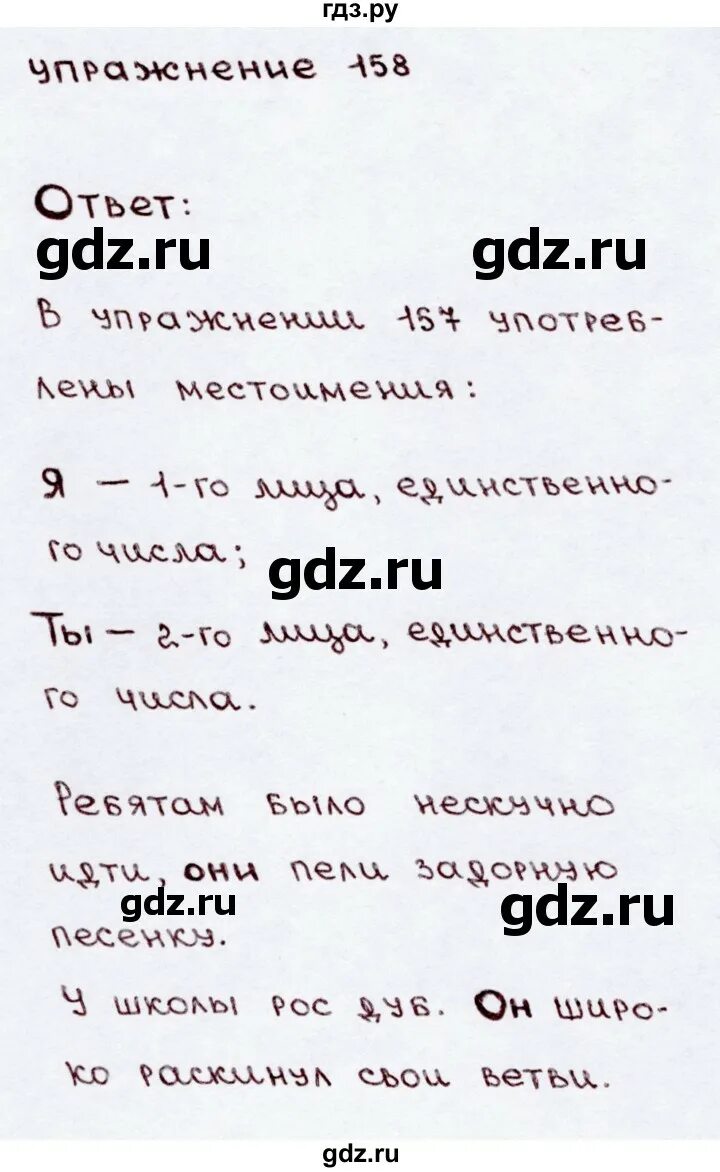 гдз.ру
упражнение 158
Ответ:
gdz.ru gdz.ru
В упражнении 157 употреб-
лены местоимения:
Я – 1-го лица, единственно-
го числа;
gdz.ru
Ты – 2-го лица, единственно-
го числа.
Ребятам было нескучно
идти, они пели задорную
gdz.ru gdz.ru
песенку.
У школы рос дуб. Он широ-
ко раскинул свои ветви.
gdz.ru